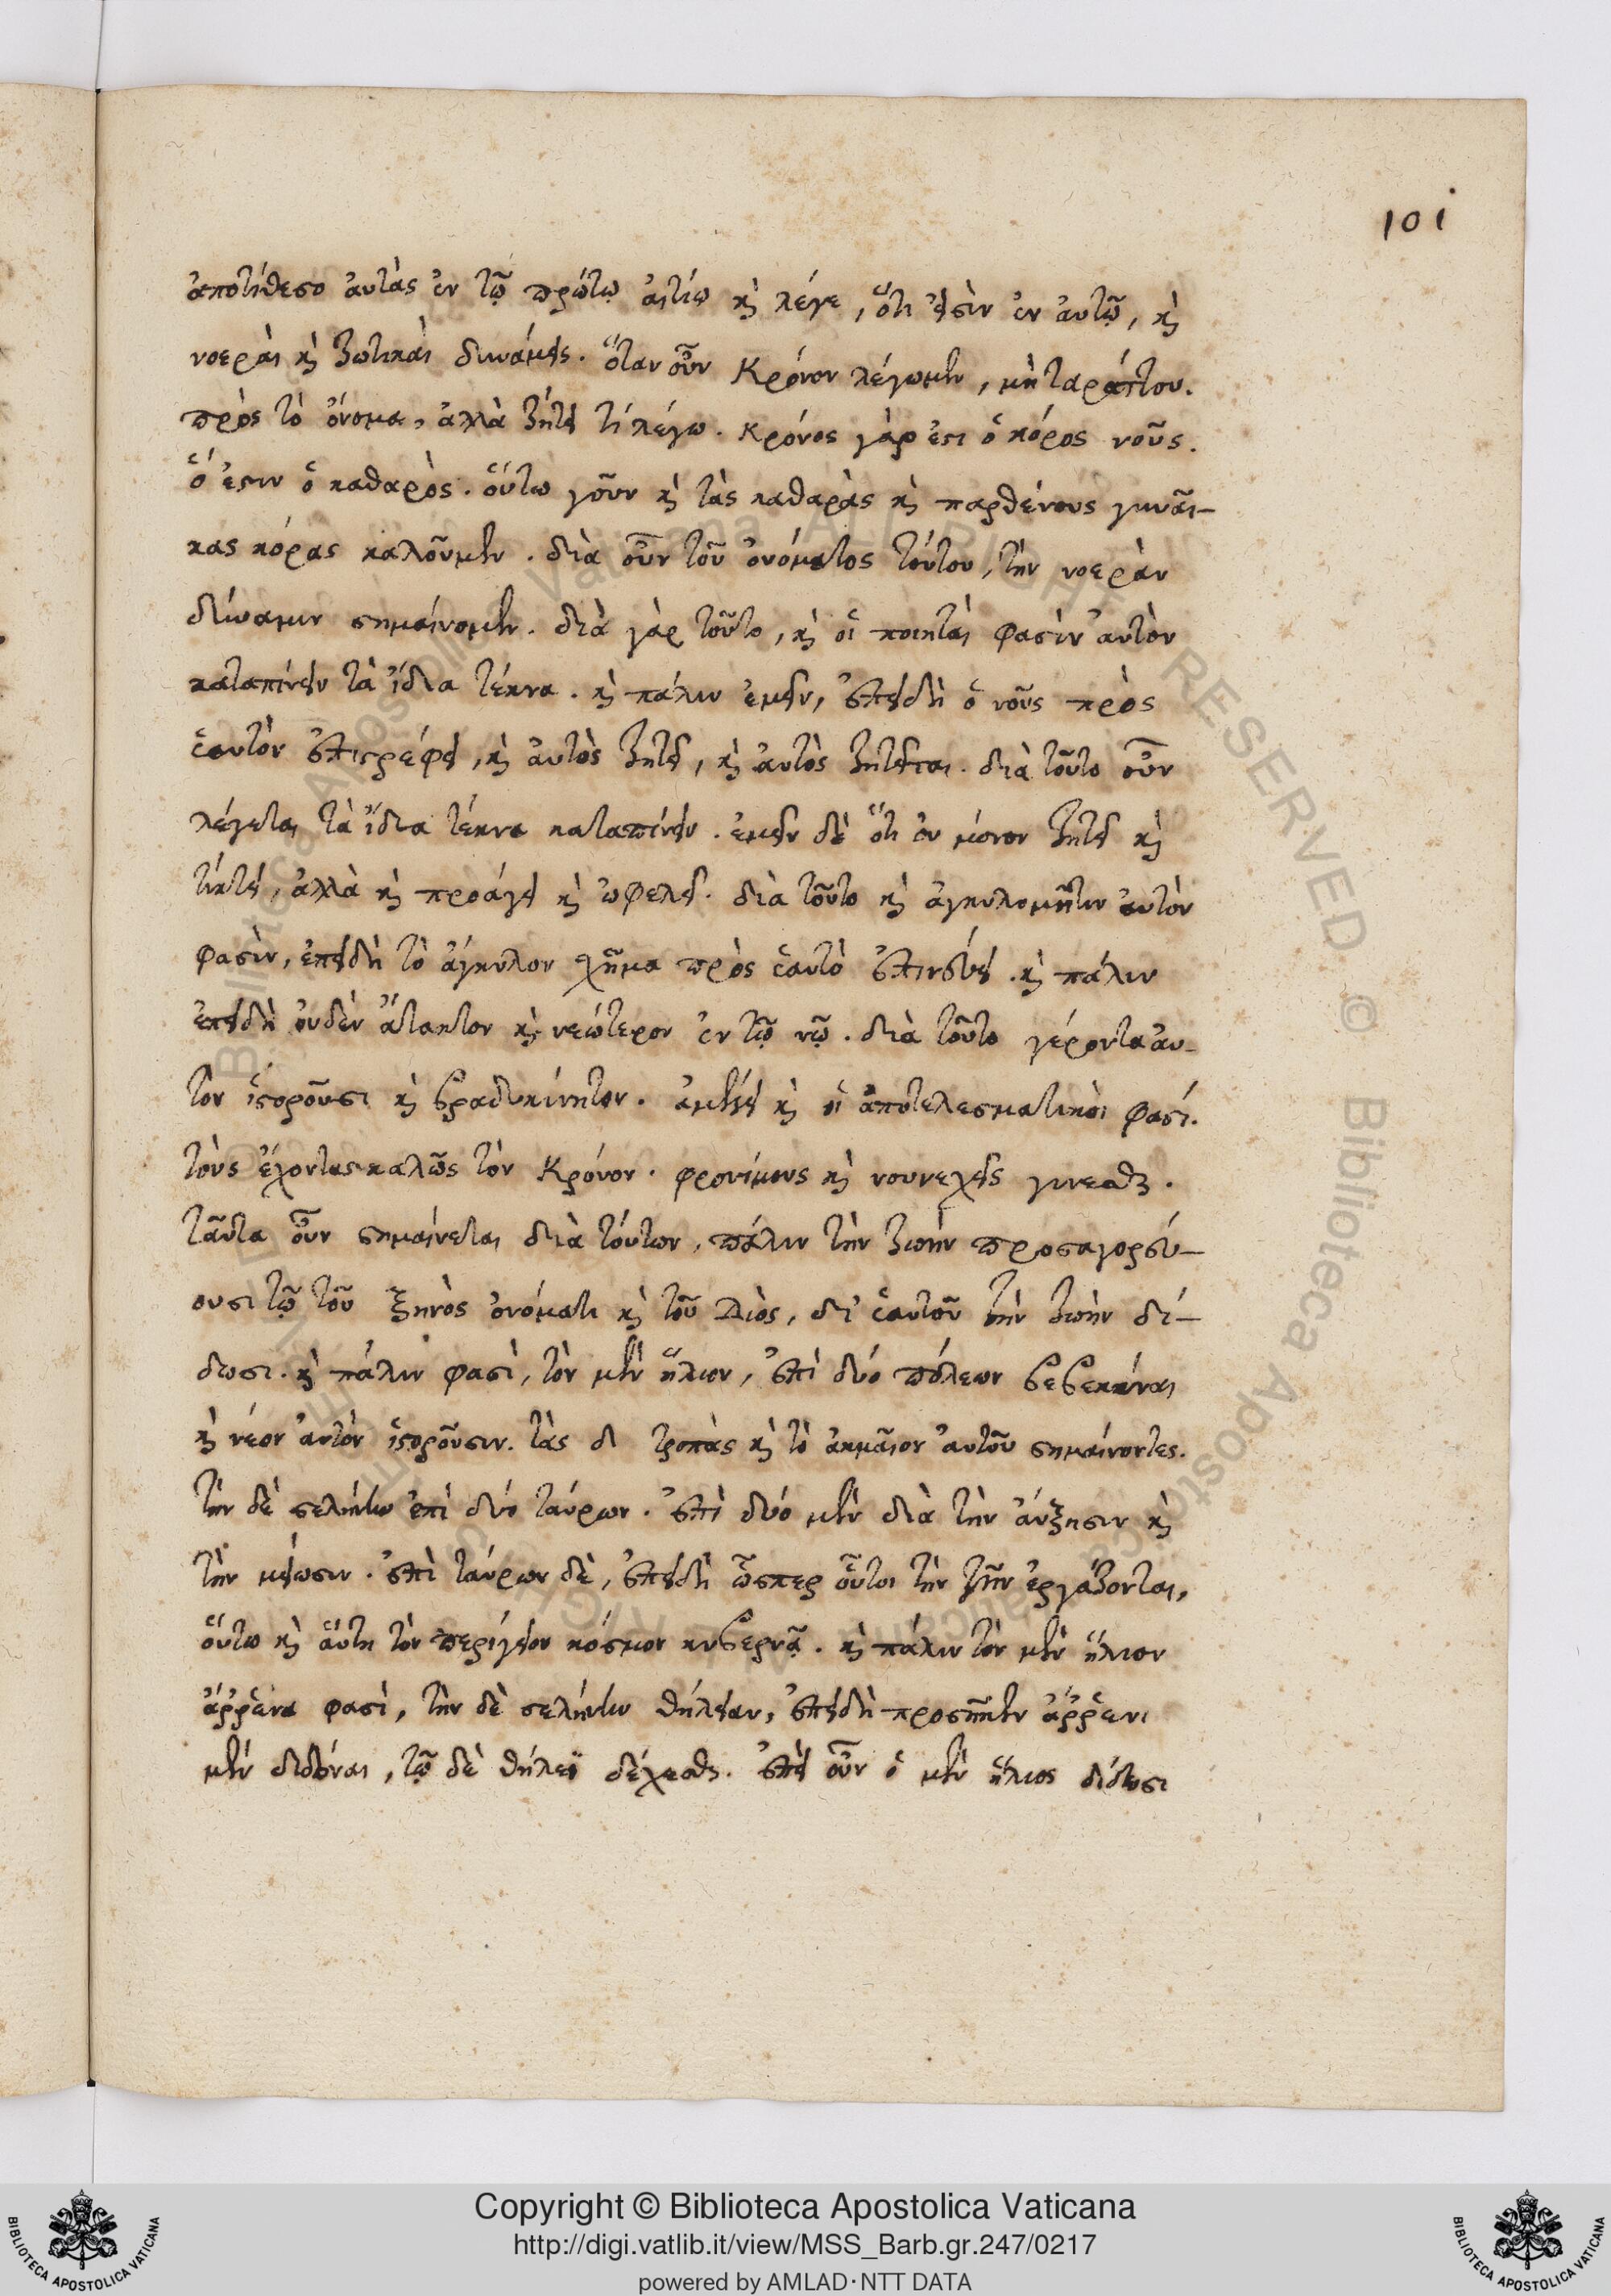 101
ἀποτίθεσο αὐτὰς ἐν τῷ πρώτῳ αἰτίῳ καὶ λέγε, ὅτι εἰσὶν ἐν αὐτῷ, καὶ
νοεραὶ καὶ ζωτικαὶ δυνάμεις. ὅταν οὖν Κρόνον λέγωμεν, μὴ ταράττου.
πρὸς τὸ ὄνομα, ἀλλὰ ζήτει τί λέγω. Κρόνος γάρ ἐστι ὁ κόρος νοῦς.
ὅ ἐστιν ὁ καθαρὸς. οὕτω γοῦν καὶ τὰς καθαρὰς καὶ παρθένους γυναῖ-
κας κόρας καλοῦμεν. διὰ οὖν τοῦ ὀνόματος τούτου, τὴν νοερὰν
δύναμιν σημαίνομεν. διὰ γὰρ τοῦτο, καὶ οἱ ποιηταὶ φασὶν αὐτὸν
καταπίνειν τὰ ἴδια τέκνα. καὶ πάλιν ἐμεῖν, ἐπειδὴ ὁ νοῦς πρὸς
ἑαυτὸν ἐπιστρέφει, καὶ αὐτὸς ζητεῖ, καὶ αὐτὸς ζητεῖται. διὰ τοῦτο οὖν
λέγεται τὰ ἴδια τέκνα καταπίνειν. ἐμεῖν δὲ ὅτι οὐ μόνον ζητεῖ καὶ
τίκτει, ἀλλὰ καὶ προάγει καὶ ὠφελεῖ. διὰ τοῦτο καὶ ἀγκυλομῆτιν αὐτὸν
φασὶν, ἐπειδὴ τὸ ἀγκύλον σχῆμα πρὸς ἑαυτὸ ἐπινεύει. καὶ πάλιν
ἐπειδὴ οὐδὲν ἄτακτον καὶ νεώτερον ἐν τῷ νῷ. διὰ τοῦτο γέροντα αὐ-
τὸν ἱστοροῦσι καὶ βραδυκίνητον. ἀμέλει καὶ οἱ ἀποτελεσματικοὶ φασί.
τοὺς ἔχοντας καλῶς τὸν Κρόνον. φρονίμους καὶ νουνεχεῖς γίνεσθαι.
ταῦτα οὖν σημαίνεται διὰ τούτων, πάλιν τὴν ζωὴν προσαγορεύ-
ουσι τῷ τοῦ Ξηνὸς ὀνόματι καὶ τοῦ Διὸς, δι' ἑαυτοῦ τὴν ζωὴν δί-
δωσι. καὶ πάλιν φασὶ, τὸν μὲν ἥλιον, ἐπὶ δύο πόλεων βεβεκέναι
καὶ νέον αὐτὸν ἱστοροῦσιν. τὰς δι τροπὰς καὶ τὸ ἀκμαῖον αὐτοῦ σημαίνοντες.
τὴν δὲ σελήνην ἐπὶ δύο ταύρων. ἐπὶ δύο μὲν διὰ τὴν αὔξησιν καὶ
τὴν μείωσιν. ἐπὶ ταύρων δὲ, ἐπειδὴ ὥσπερ οὗτοι τὴν γῆν ἐργάζονται,
οὕτω καὶ αὕτη τὸν περίγειον κόσμον κυβερνᾷ. καὶ πάλιν τὸν μὲν ἥλιον
ἄῤῥενα φασὶ, τὴν δὲ σελήνην θήλειαν, ἐπειδὴ προσῆκεν ἄῤῥενι
μὲν διδόναι, τῷ δὲ θήλεϊ δέχεσθαι. ἐπεὶ οὖν ὁ μὲν ἥλιος δίδωσι
Copyright © Biblioteca Apostolica Vaticana
http://digi.vatlib.it/view/MSS_Barb.gr.247/0217
powered by AMLAD·NTT DATA